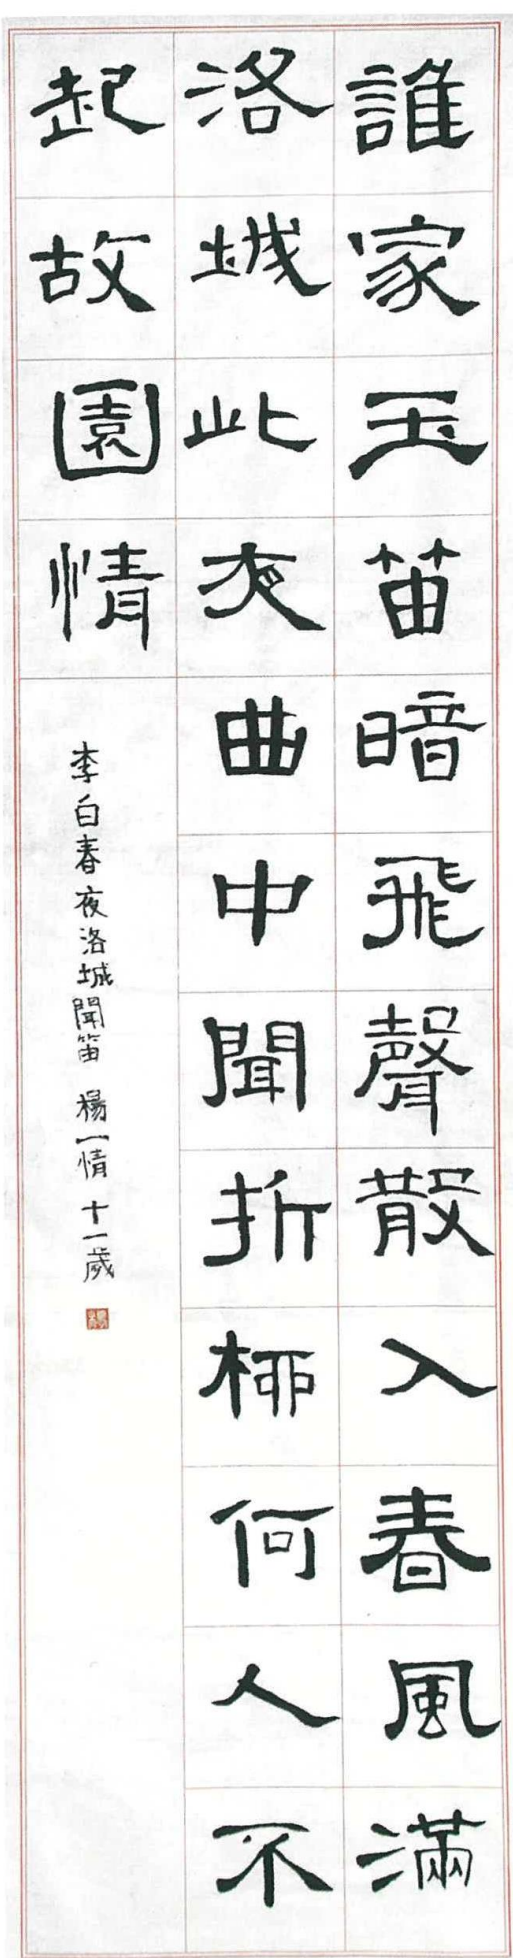 誰家玉笛暗飛聲散入春風滿
洛城此夜曲中聞折柳何人不
起故園情
李白春夜洛城聞笛 楊一情 十一歲